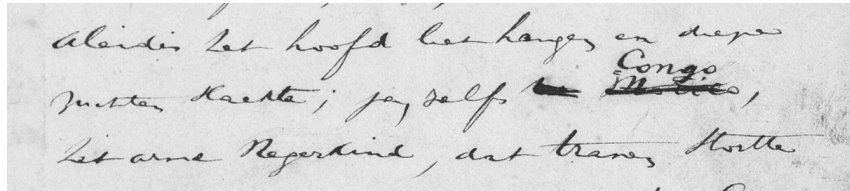 Aleidis het hoofd liet hangen en diepe
zuchten slaakte; ja, zelfs Congo,
het arme Negerkind, dat tranen stortte